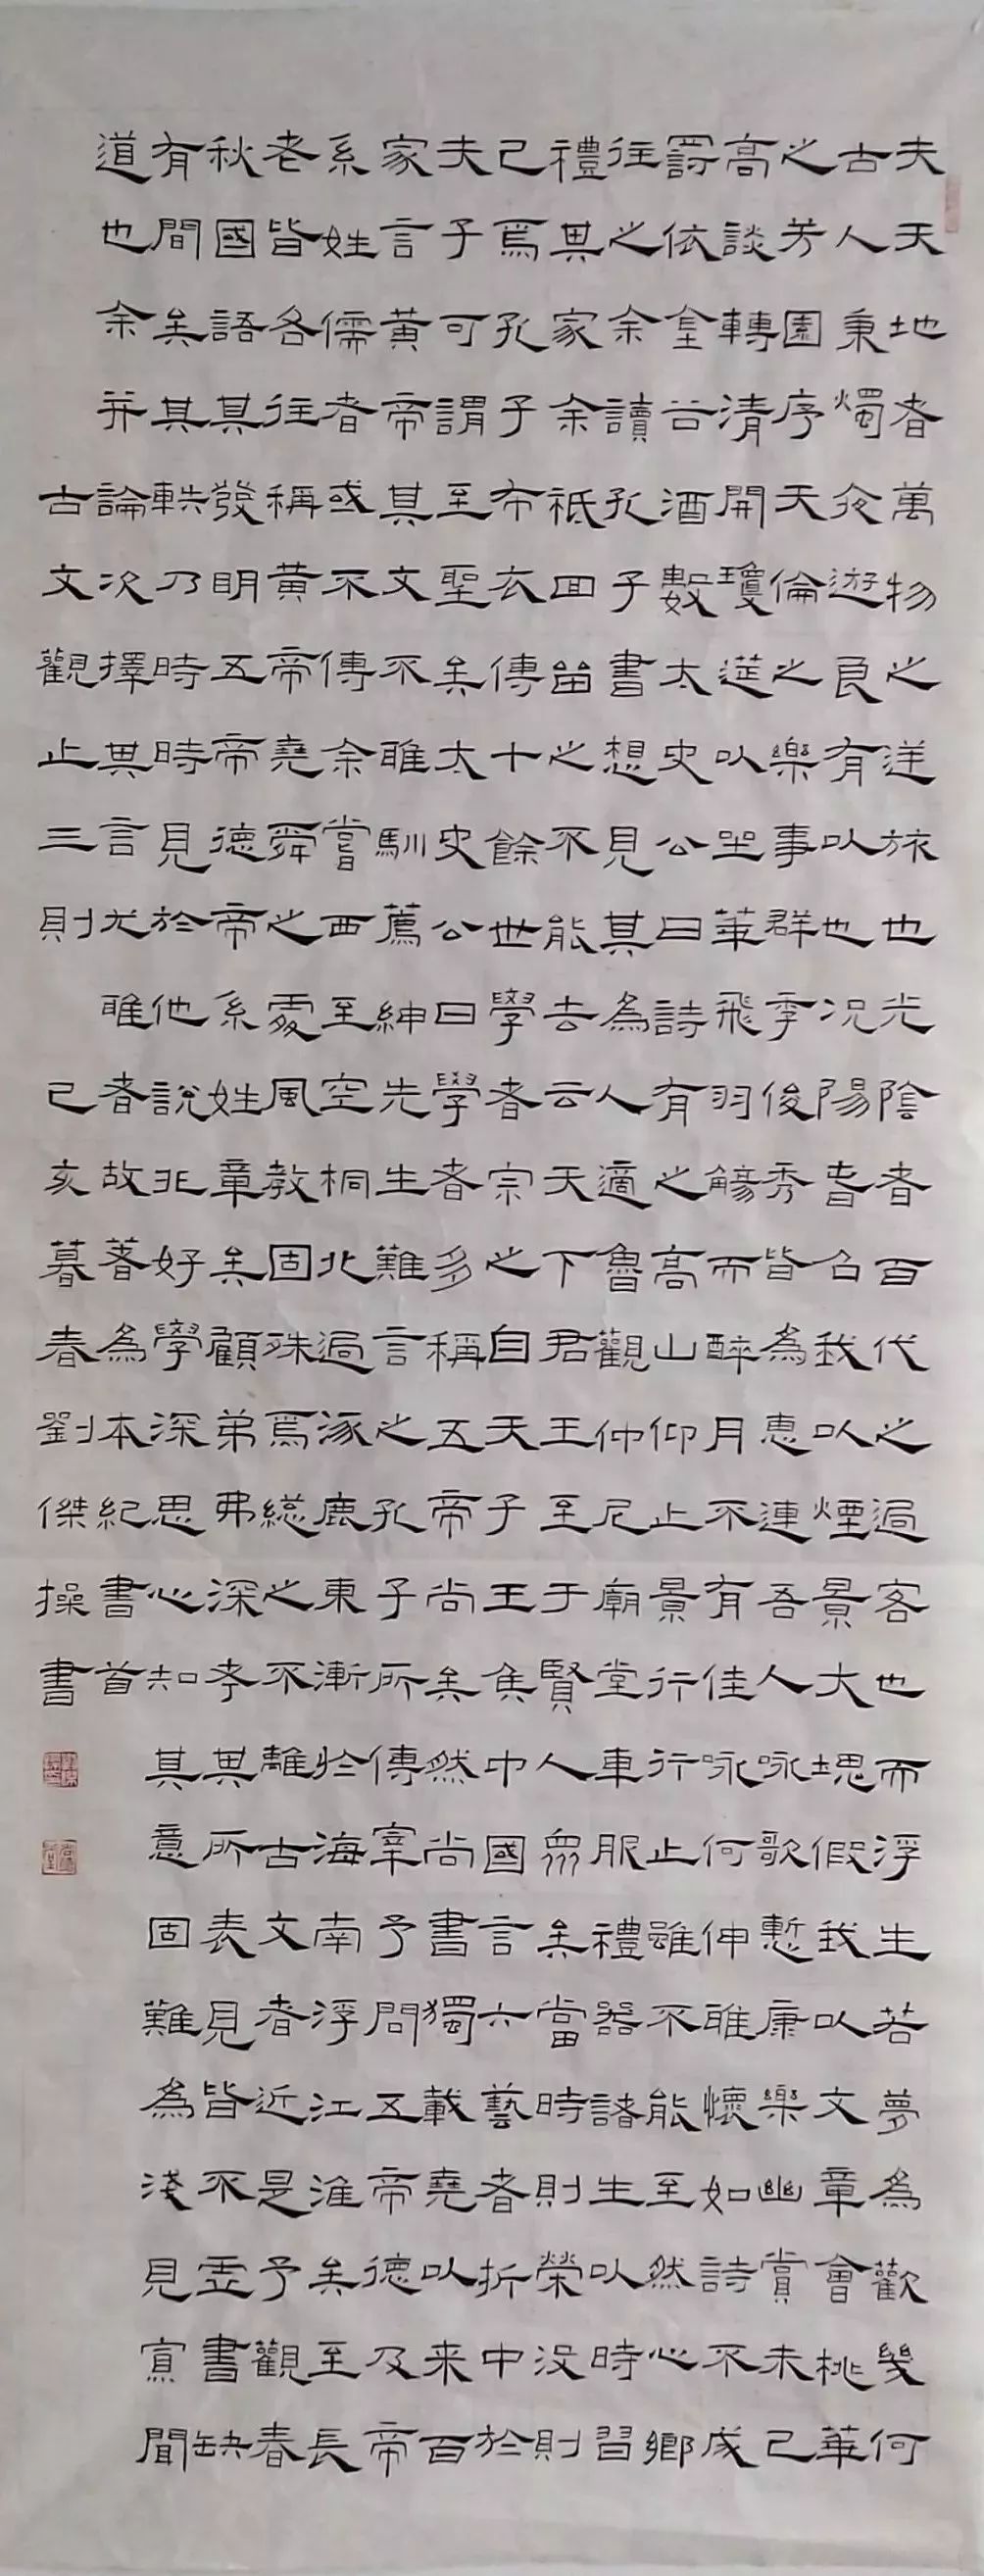 夫天地者萬物之逆旅也光陰者百代之過客也而浮生若夢為歡幾何
古人秉燭夜遊良有以也況陽春召我以煙景大塊假我以文章會桃華
之芳園序天倫之樂事群季俊秀皆為惠連吾人咏歌慙康樂幽賞未已
高談轉清開瓊筵以坐華飛羽觴而醉月不有佳咏何伸雅懷如詩不成
罰依金谷酒數太史公曰詩有之高山仰止景行行止雖不能至然心鄉
往之余讀孔子書想見其為人適魯觀仲尼廟堂車服禮器諸生以時習
禮其家余祗回留之不能去云天下君王至于賢人眾矣當時則榮沒則
已焉孔子布衣傳十餘世學者宗之自天子王侯中國言六藝者折中於
夫子可謂至聖矣太史公曰學者多稱五帝尚矣然尚書獨載堯以來百
家言黃帝其文不雅馴薦紳先生難言之孔子所傳宰予問五帝德及帝
系姓儒者或不傳余嘗西至空桐北過涿鹿東漸於海南浮江淮矣至長
老皆各往稱黃帝堯舜之處風教固殊焉總之不離古文者近是予觀春
秋國語其發明五帝德帝系姓章矣顧弟弗深考其所表見皆不虛書缺
有間矣其軼乃時時見於他說非好學深思心知其意固難為淺見寡聞
道也余并論次擇其言尤雅者故著為本紀書首
古文觀止三則 己亥暮春劉傑操書